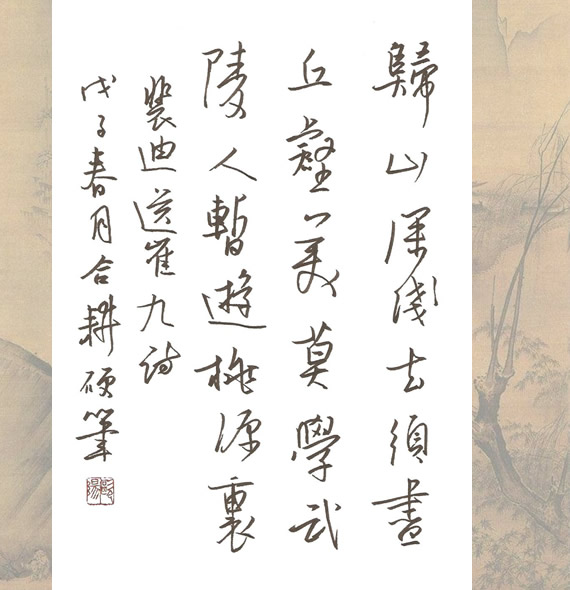 歸山深淺去須盡
丘壑美莫學武
陵人暫遊桃源裏
裴迪送崔九詩
戊子春月合耕硬筆